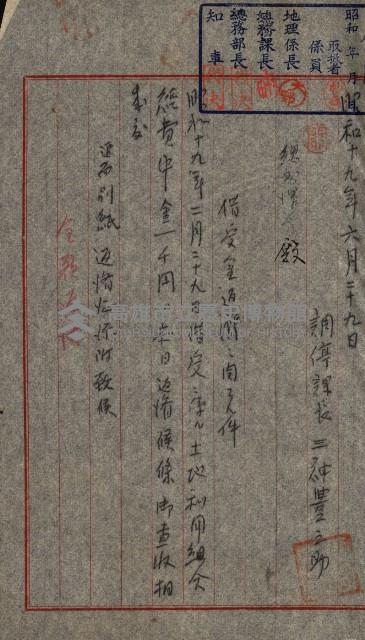 昭和 年 月
取扱者
係員
地理係長
總務課長
總務部長
知事
昭和十九年六月二十九日
調停課長 三神豊之助
總務課長 殿
借受金返濟ニ関スル件
昭和十九年二月二十九日借受 土地利用組合
經費中金一千円 本日返濟候條御査收相
成度
追而別紙返濟 添附致候
高雄市立歷史博物館